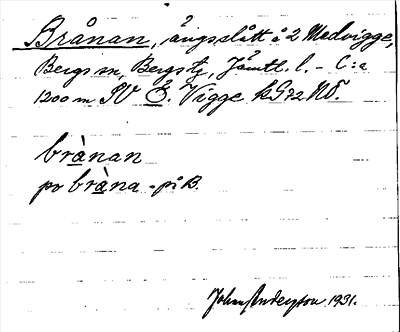 Brånan, ängsslått å 2 Medvigge,
Bergs sn, Bergs tg, Jämtl. l. - C:a
1200 m SV Ö. Vigge kG 72 NO.
brànan
pr bràna - på B.
John Anderzson 1931.